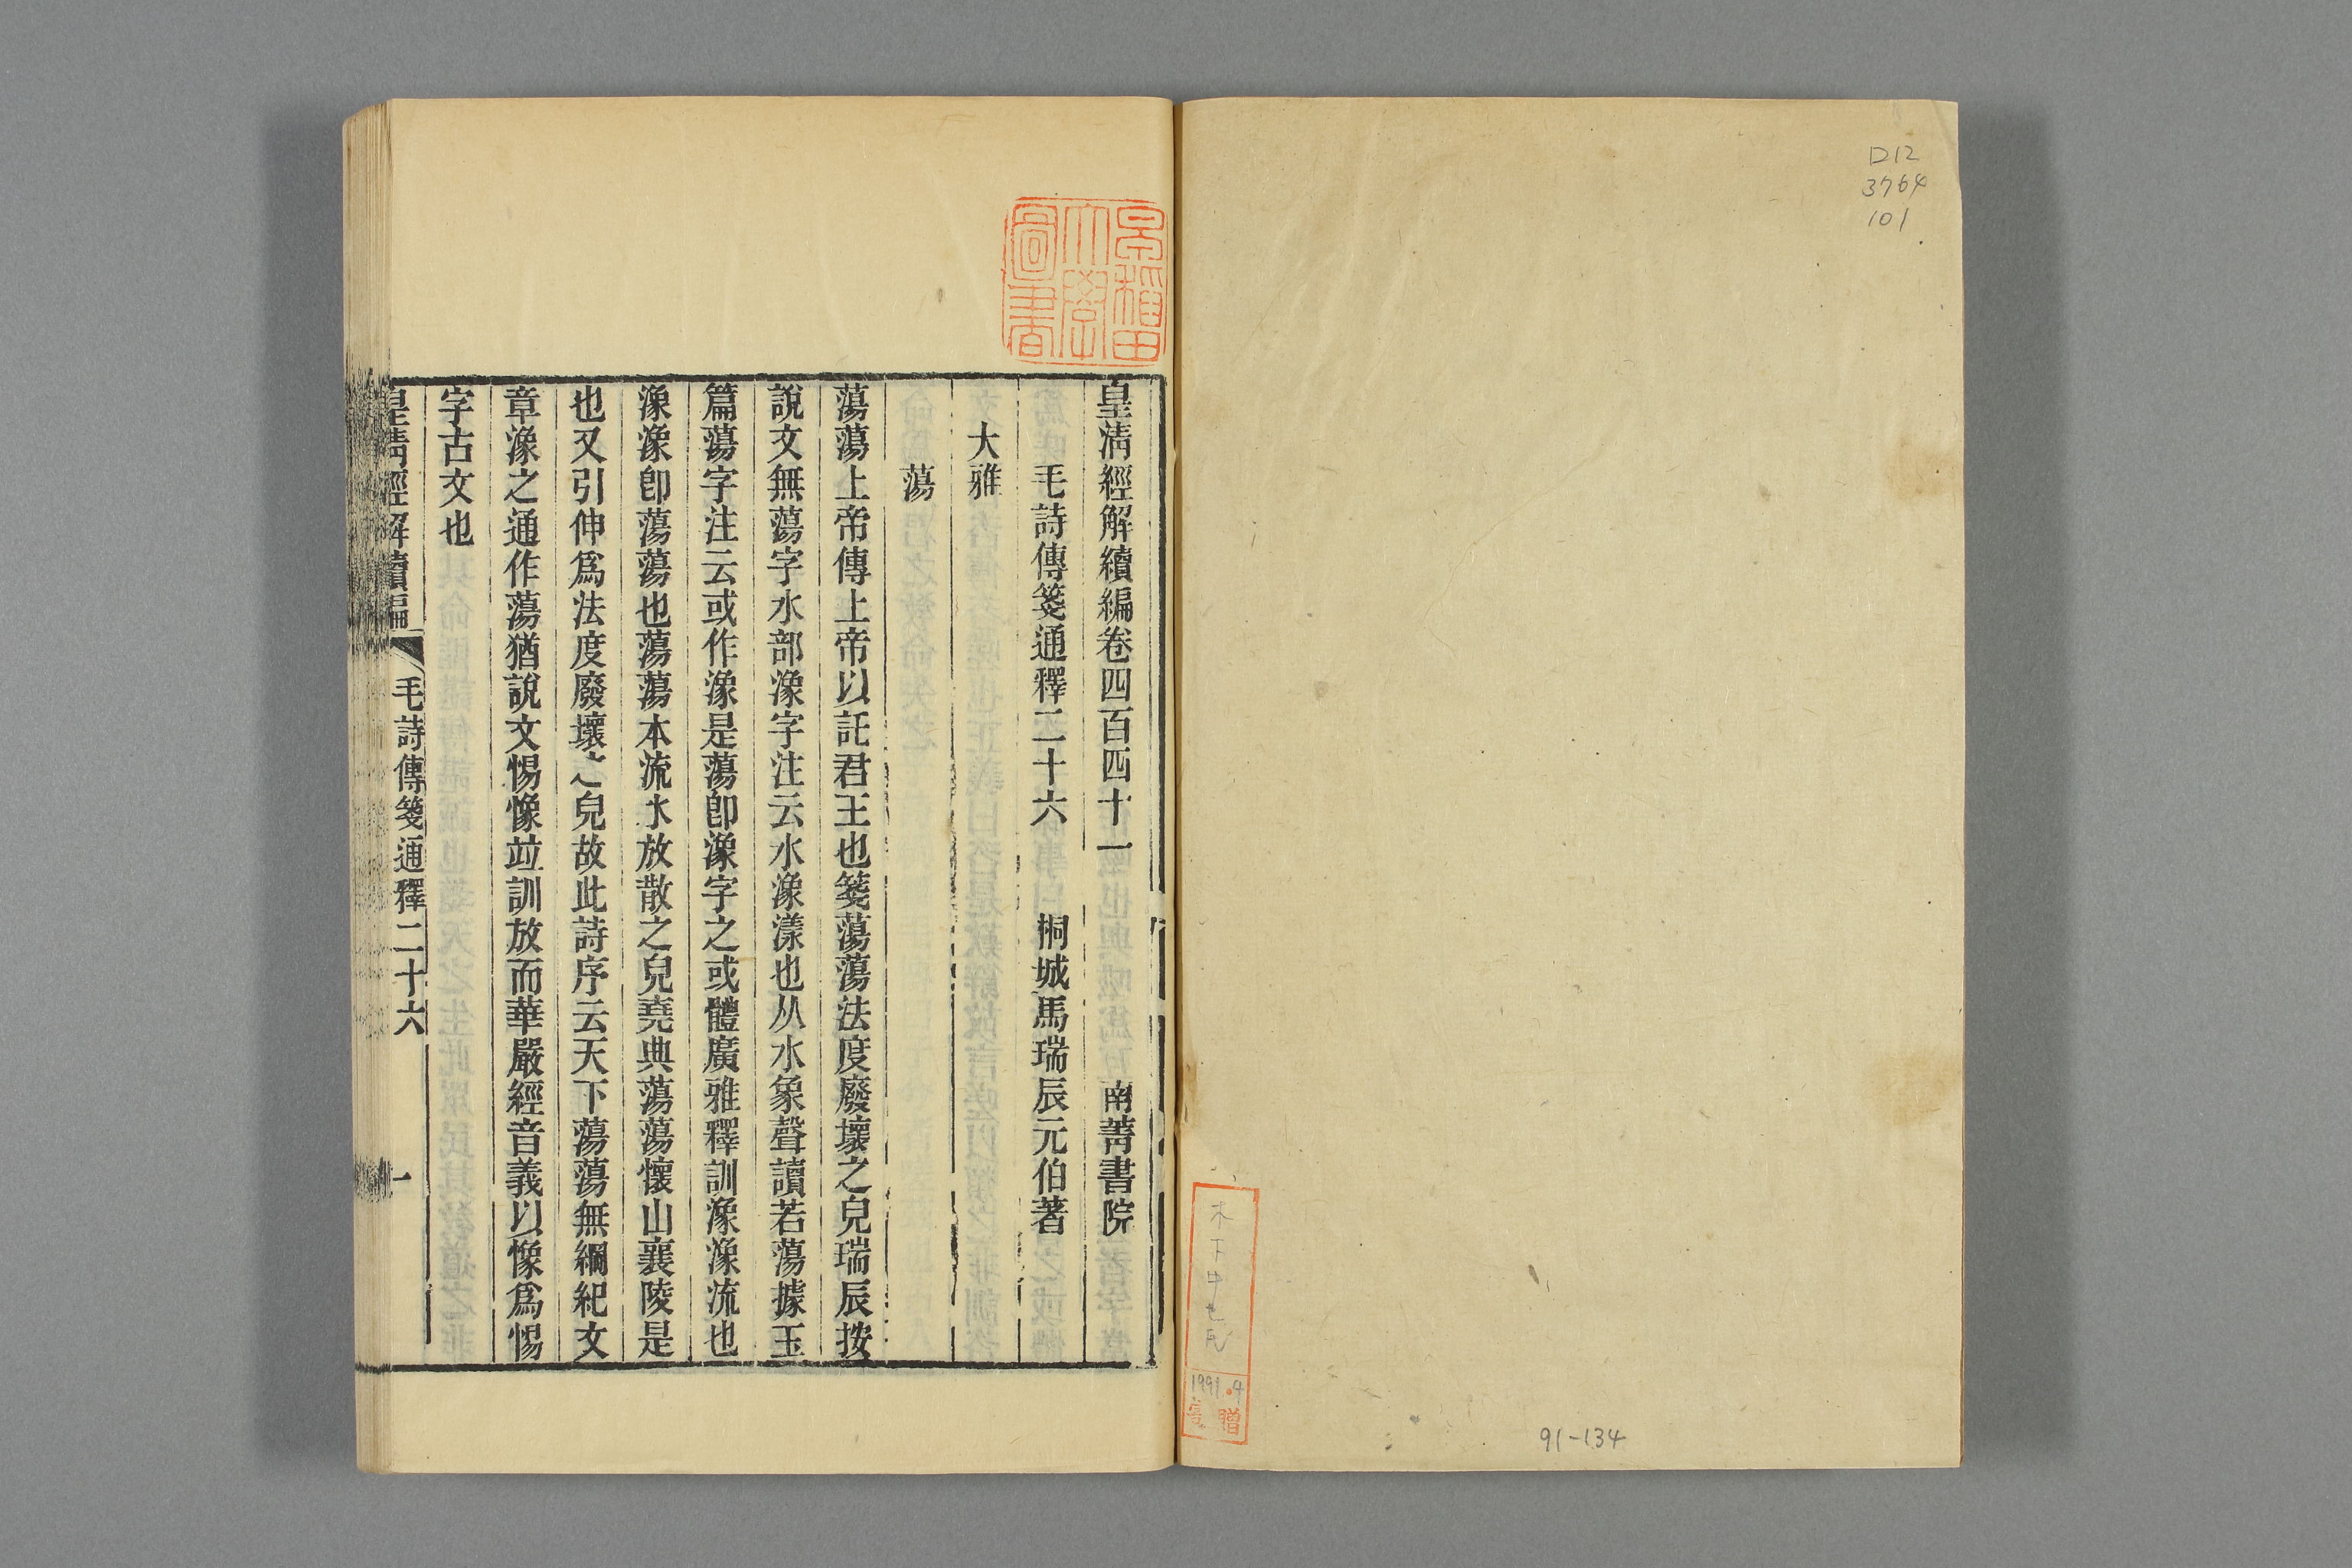 D12
3764
101
木下中也氏
1991.4
寄贈
91-134
早稲田
大學
圖書
皇清經解續編卷四百四十一 南菁書院
毛詩傳箋通釋二十六 桐城馬瑞辰元伯著
大雅
蕩
蕩蕩上帝傳上帝以託君王也箋蕩蕩法度廢壞之皃瑞辰按
說文無蕩字水部潒字注云水潒瀁也从水象聲讀若蕩據玉
篇蕩字注云或作潒是蕩卽潒字之或體廣雅釋訓潒潒流也
潒潒卽蕩蕩也蕩蕩本流水放散之皃堯典蕩蕩懷山襄陵是
也又引伸爲法度廢壞之皃故此詩序云天下蕩蕩無綱紀文
章潒之通作蕩猶說文惕憽竝訓放而華嚴經音義以憽爲惕
字古文也
皇清經解續編 毛詩傳箋通釋二十六 一